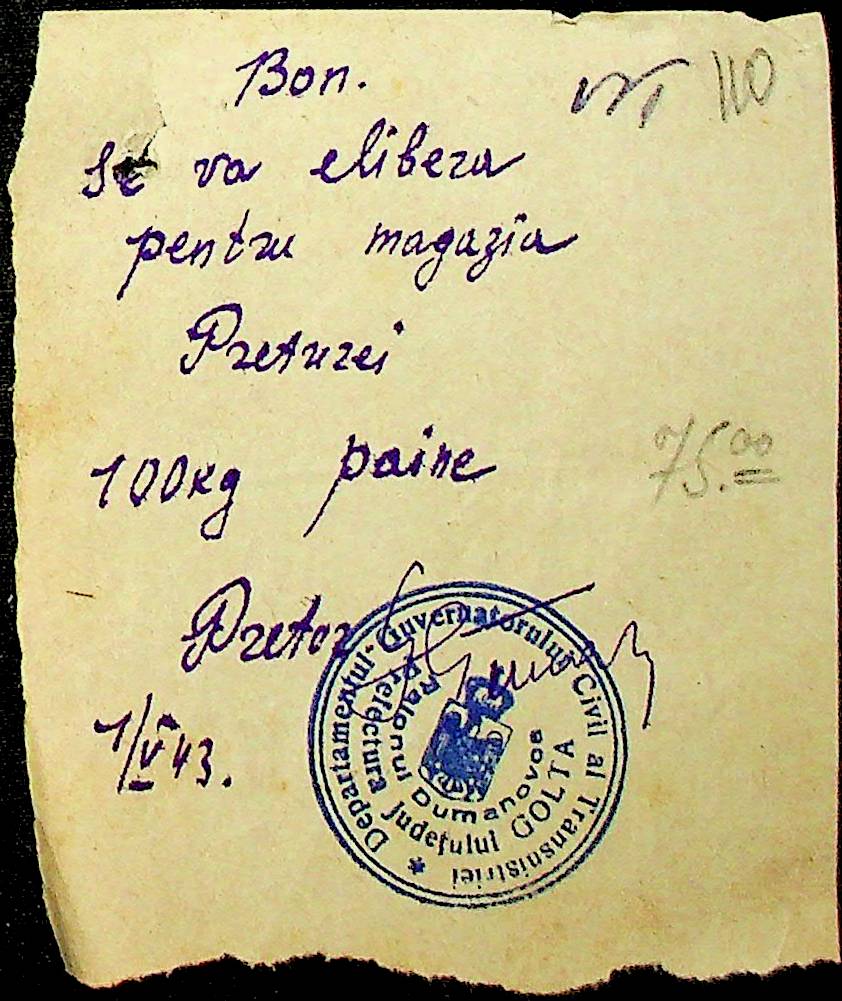 Bon.
110
Se va elibera
pentru magazia
Preturei
100kg paine
75.00
Pretor
1/V 43.
Departamentul Guvernatorului Civil al Transnistriei
Prefectura Județului GOLTA
Raionul Dumanovca